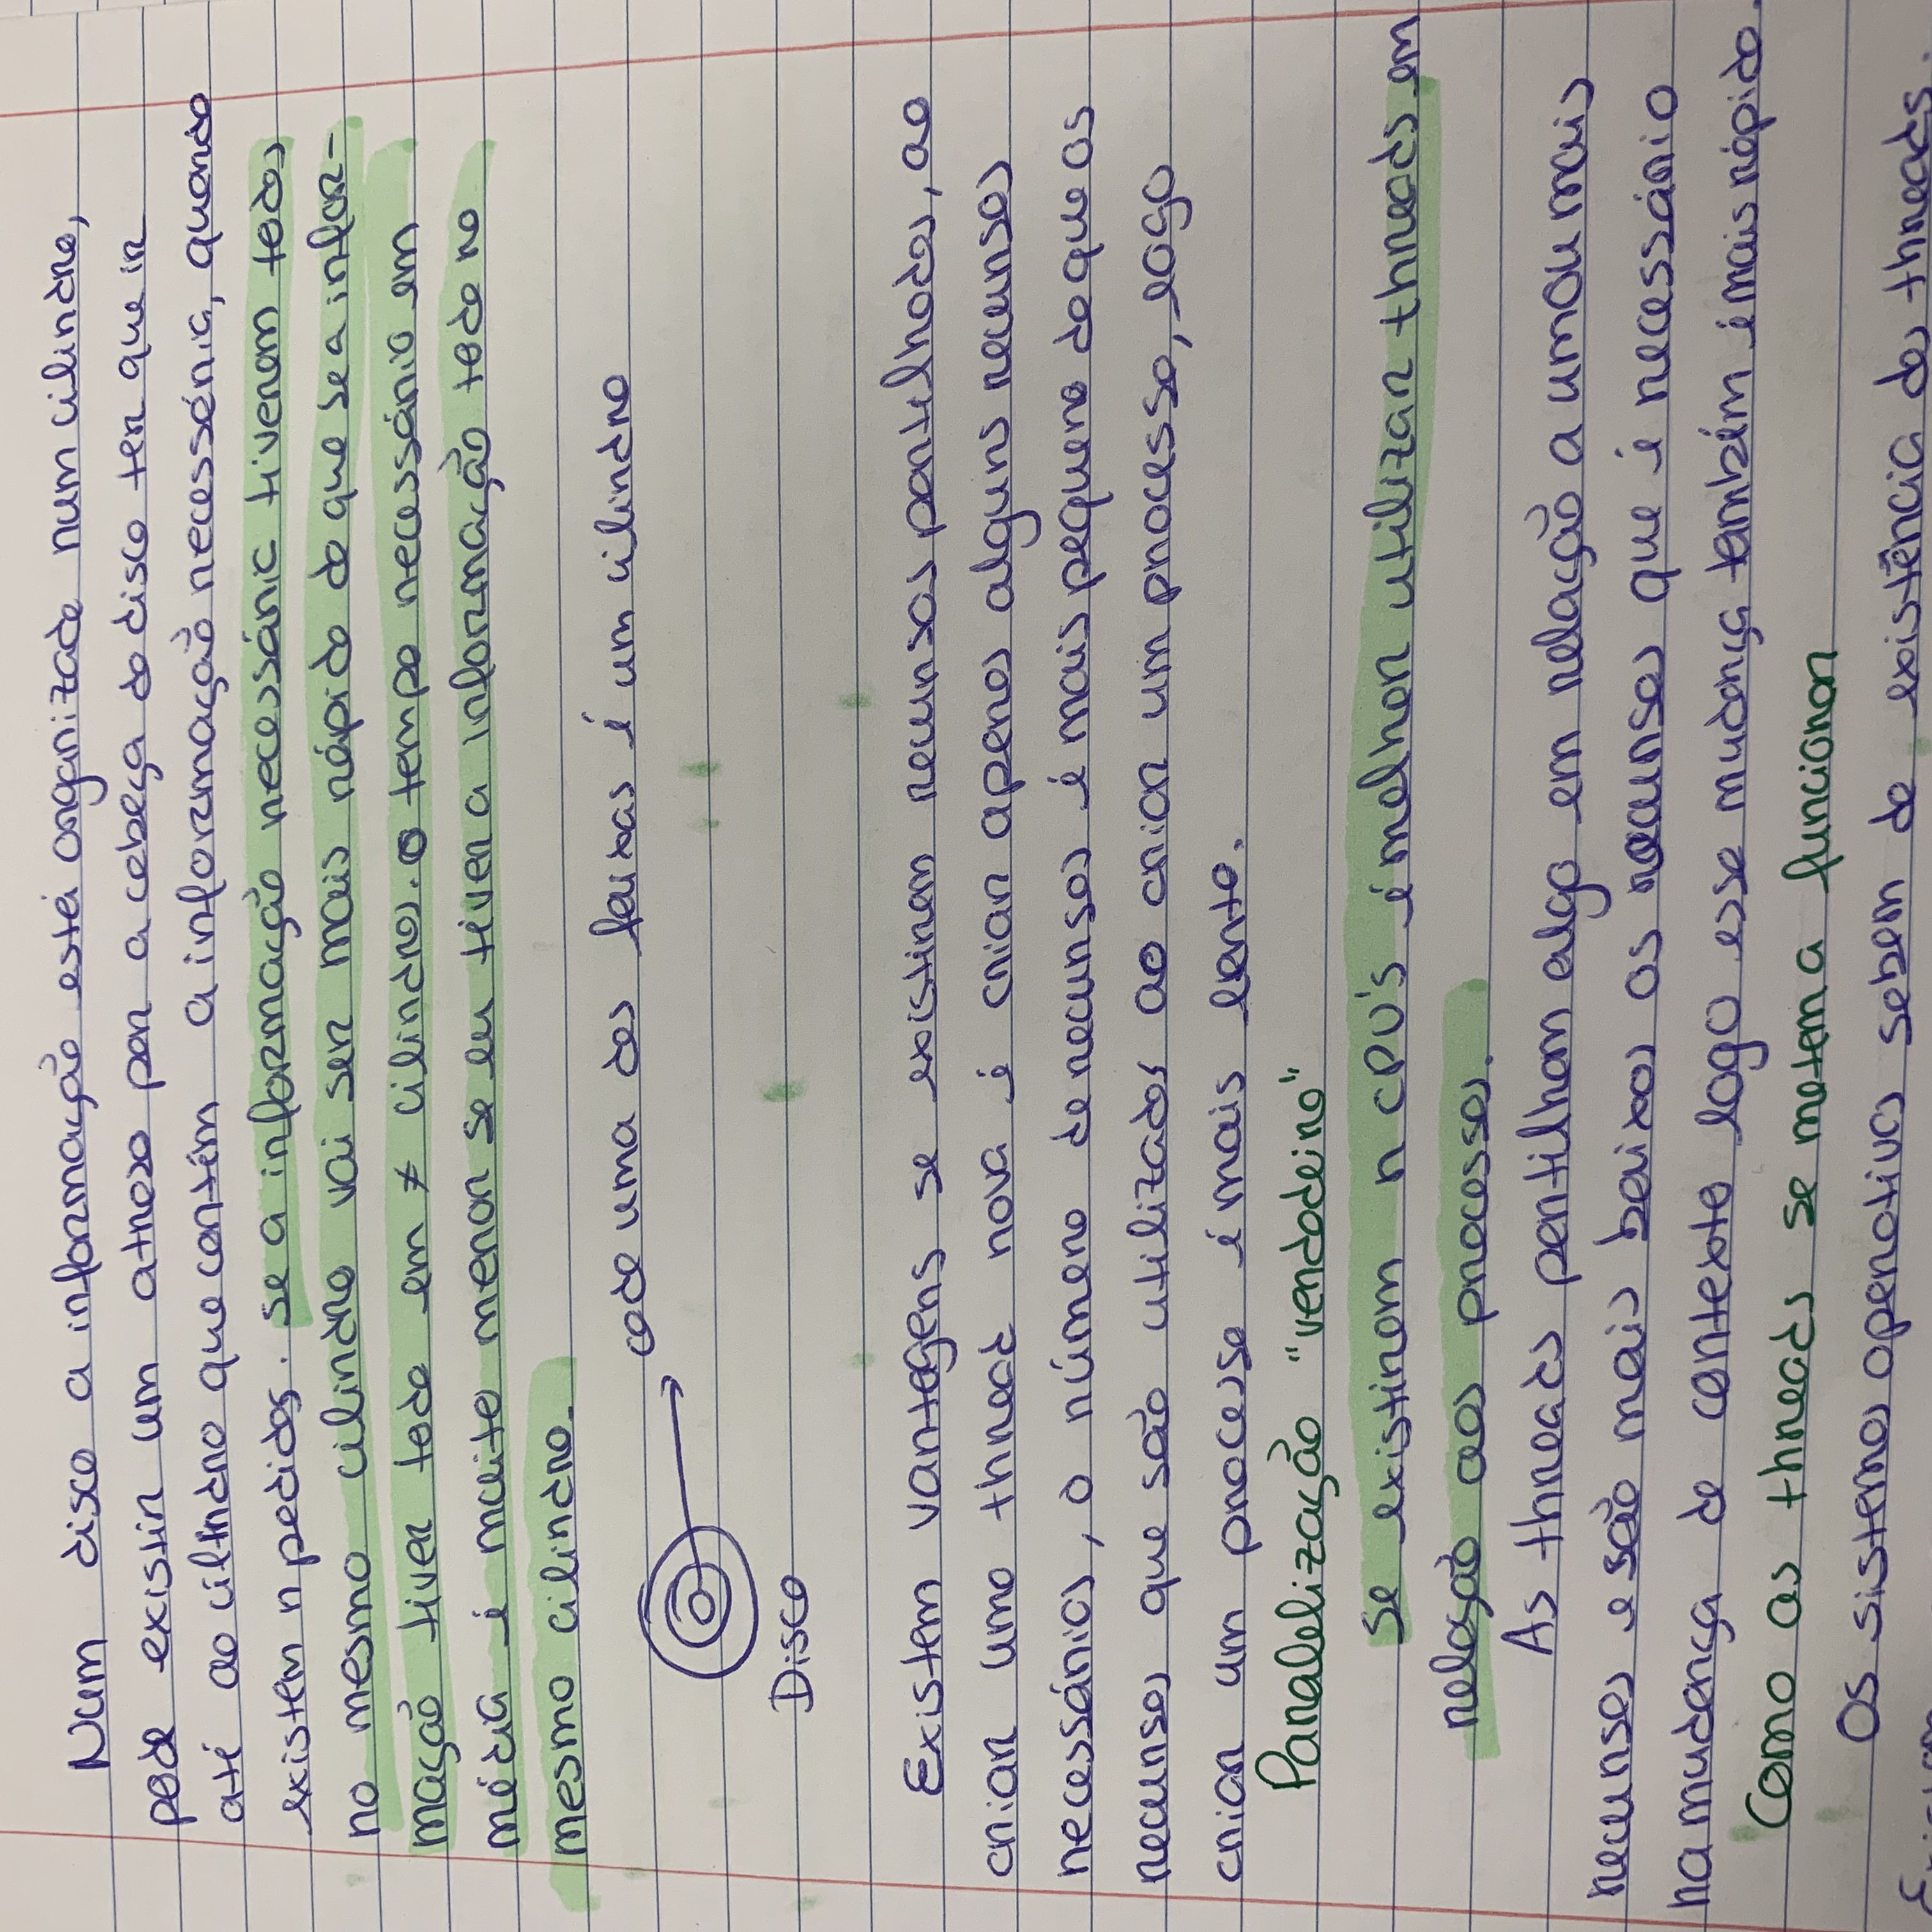 Num disco a informação está organizada num cilindro,
pode existir um atraso por a cabeça do disco ter que ir
até ao cilindro que contém a informação necessária, quando
existem n pedidos. Se a informação necessária tiverem todos
no mesmo cilindro vai ser mais rápido do que se a infor-
mação tiver toda em ≠ cilindros. O tempo necessário em
média é muito menor se eu tiver a informação toda no
mesmo cilindro.
cada uma das faixas é um cilindro
Disco
Existem vantagens se existirem recursos partilhados, ao
criar uma thread nova é criar apenas alguns recursos
necessários, o número de recursos é mais pequeno do que os
recursos que são utilizados ao criar um processo, logo
criar um processo é mais lento.
Paralelização "verdadeira"
Se existirem n CPU's é melhor utilizar threads em
relação aos processos.
As threads partilham algo em relação a um ou mais
recursos e são mais baixos os recursos que é necessário
na mudança de contexto logo essa mudança também é mais rápida.
Como as threads se metem a funcionar
Os sistemas operativos sabem da existência das threads.